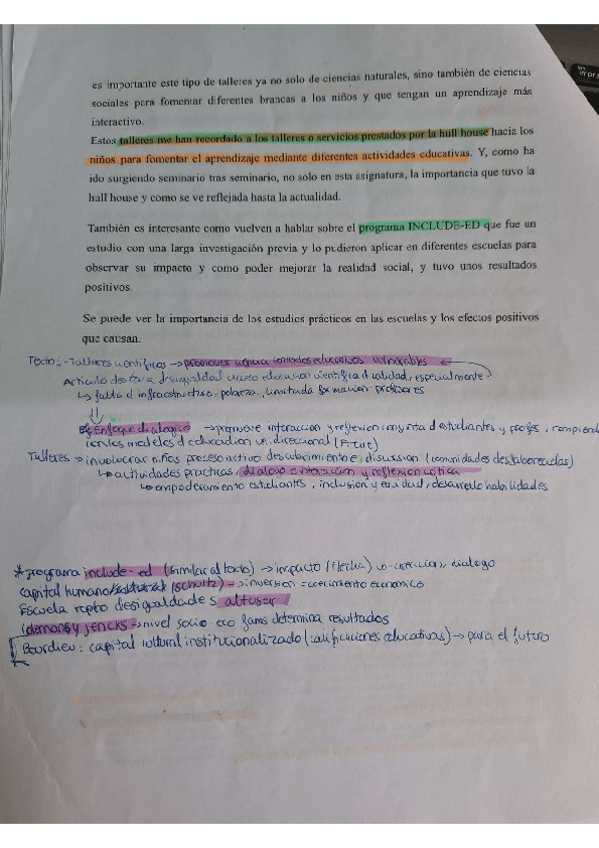 es importante este tipo de talleres ya no solo de ciencias naturales, sino también de ciencias
sociales para fomentar diferentes brancas a los niños y que tengan un aprendizaje más
interactivo.
Estos talleres me han recordado a los talleres o servicios prestados por la hull house hacia los
niños para fomentar el aprendizaje mediante diferentes actividades educativas. Y, como ha
ido surgiendo seminario tras seminario, no solo en esta asignatura, la importancia que tuvo la
hull house y como se ve reflejada hasta la actualidad.
También es interesante como vuelven a hablar sobre el programa INCLUDE-ED que fue un
estudio con una larga investigación previa y lo pudieron aplicar en diferentes escuelas para
observar su impacto y como poder mejorar la realidad social, y tuvo unos resultados
positivos.
Se puede ver la importancia de los estudios prácticos en las escuelas y los efectos positivos
que causan.
Texto: - Talleres científicos → promover ciencia contextos educativos vulnerables
Artículo destaca desigualdad acceso educación científica d calidad, especialmente
↳ falta d infraestructura, pobreza, limitada formación profesores
Enfoque dialogico → promueve interaccion y reflexion conjunta d estudiantes y profes, rompiendo
con los modelos d educadion unidireccional (Freire)
Talleres → involucrar niños proceso activo descubrimiento e discussion (comunidades desfaborecidas)
↳ actividades practicas, dialogo e interaccion y reflexion critica
↳ empoderamiento estudiantes, inclusion y equidad, desarrollo habilidades
* programa include-ed (similar al texto) → impacto (Flecha) dialogo
capital humano (schultz) → inversion = crecimiento economico
Escuela repro desigualdades altuser
(demons y jencks → nivel socio eco fams determina resultados
Bourdieu: capital cultural institucionalizado (calificaciones educativas) → para el futuro